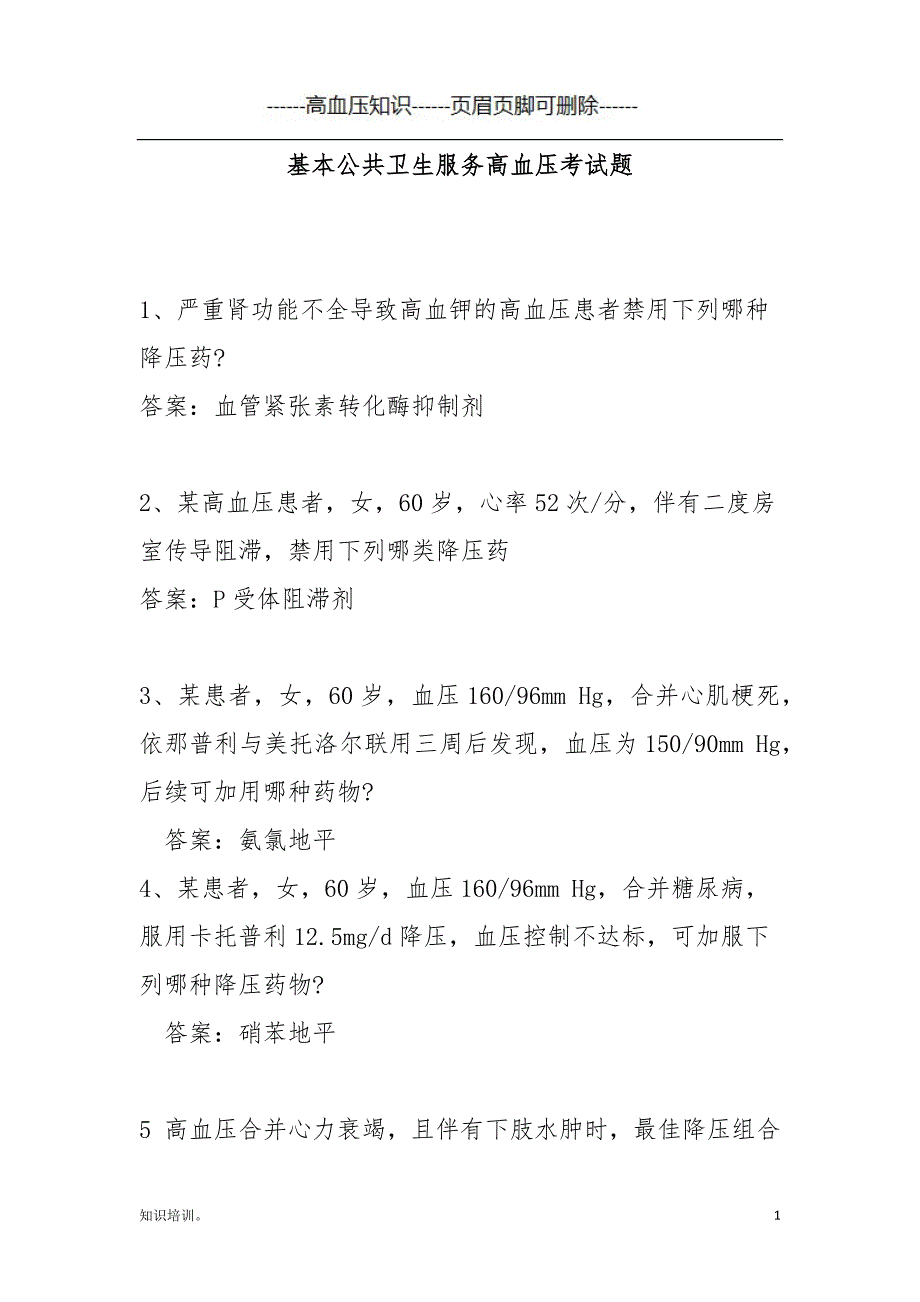 ------高血压知识------页眉页脚可删除------
基本公共卫生服务高血压考试题
1、严重肾功能不全导致高血钾的高血压患者禁用下列哪种
降压药?
答案：血管紧张素转化酶抑制剂
2、某高血压患者，女，60岁，心率52次/分，伴有二度房
室传导阻滞，禁用下列哪类降压药
答案：P受体阻滞剂
3、某患者，女，60岁，血压160/96mm Hg，合并心肌梗死，
依那普利与美托洛尔联用三周后发现，血压为150/90mm Hg，
后续可加用哪种药物?
答案：氨氯地平
4、某患者，女，60岁，血压160/96mm Hg，合并糖尿病，
服用卡托普利12.5mg/d降压，血压控制不达标，可加服下
列哪种降压药物?
答案：硝苯地平
5 高血压合并心力衰竭，且伴有下肢水肿时，最佳降压组合
知识培训。 1